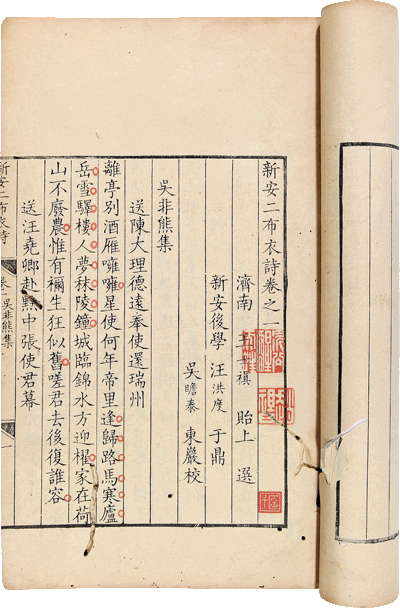 新安二布衣詩卷之一
濟南 王士禛 貽上 選
新安後學 汪洪度 于鼎
吳瞻泰 東巖校
吳非熊集
送陳大理德遠奉使還瑞州
離亭別酒雁噰噰星使何年帝里逢歸路馬寒廬
岳雪驛樓人夢秣陵鐘城臨錦水方迎櫂家在荷
山不廢農惟有禰生狂似舊嗟君去後復誰容
送汪堯卿赴黔中張使君幕
新安二布衣詩 卷一 吳非熊集 一